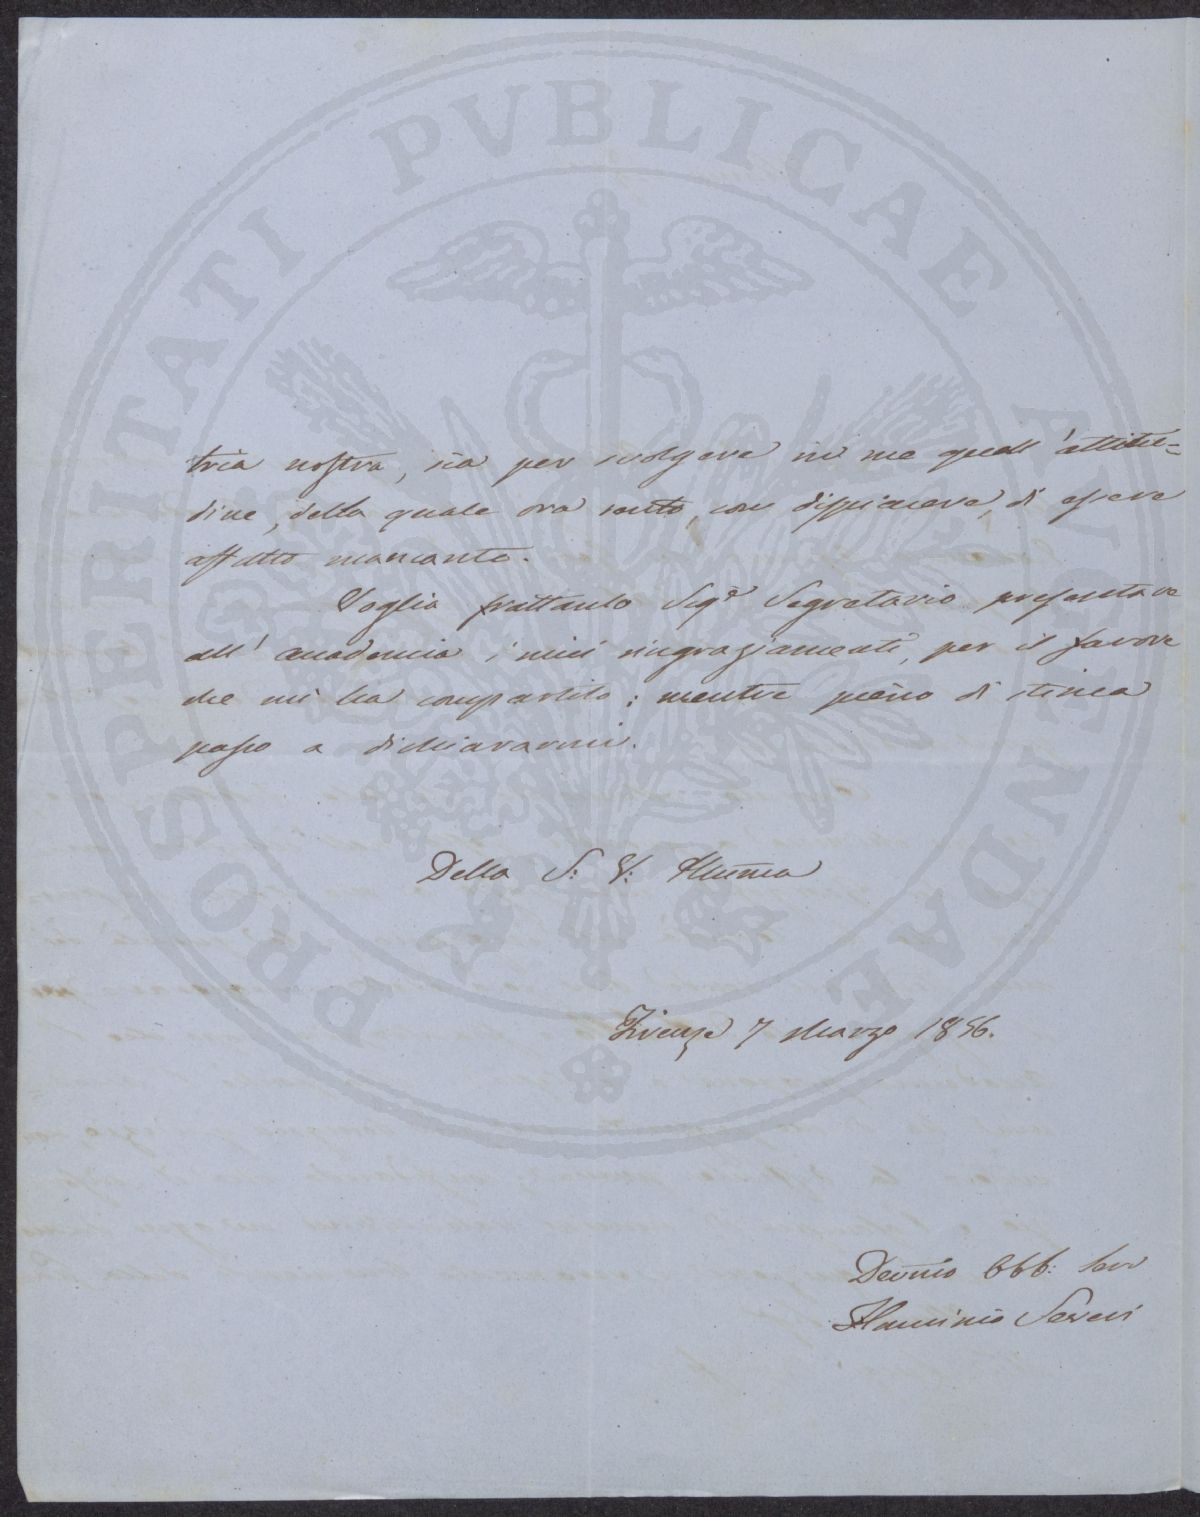 PROSPERITATI PVBLICAE AVGENDAE
tria nostra, sia per svolgere in me quell'attitu=
dine, della quale ora sento, con dispiacere, di essere
affatto mancante.
Voglia frattanto Sigr Segretario presentare
all'accademia i miei ringraziamenti, per il favore
che mi ha compartito; mentre pieno di stima
passo a dichiararmi.
Della S: V: Illuma
Firenze 7 Marzo 1856.
Devmo Obb: Serv
Flaminio Severi